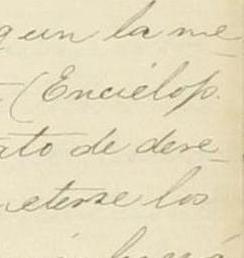 gun la me
(Encielop.
ato de dere-
eterse los